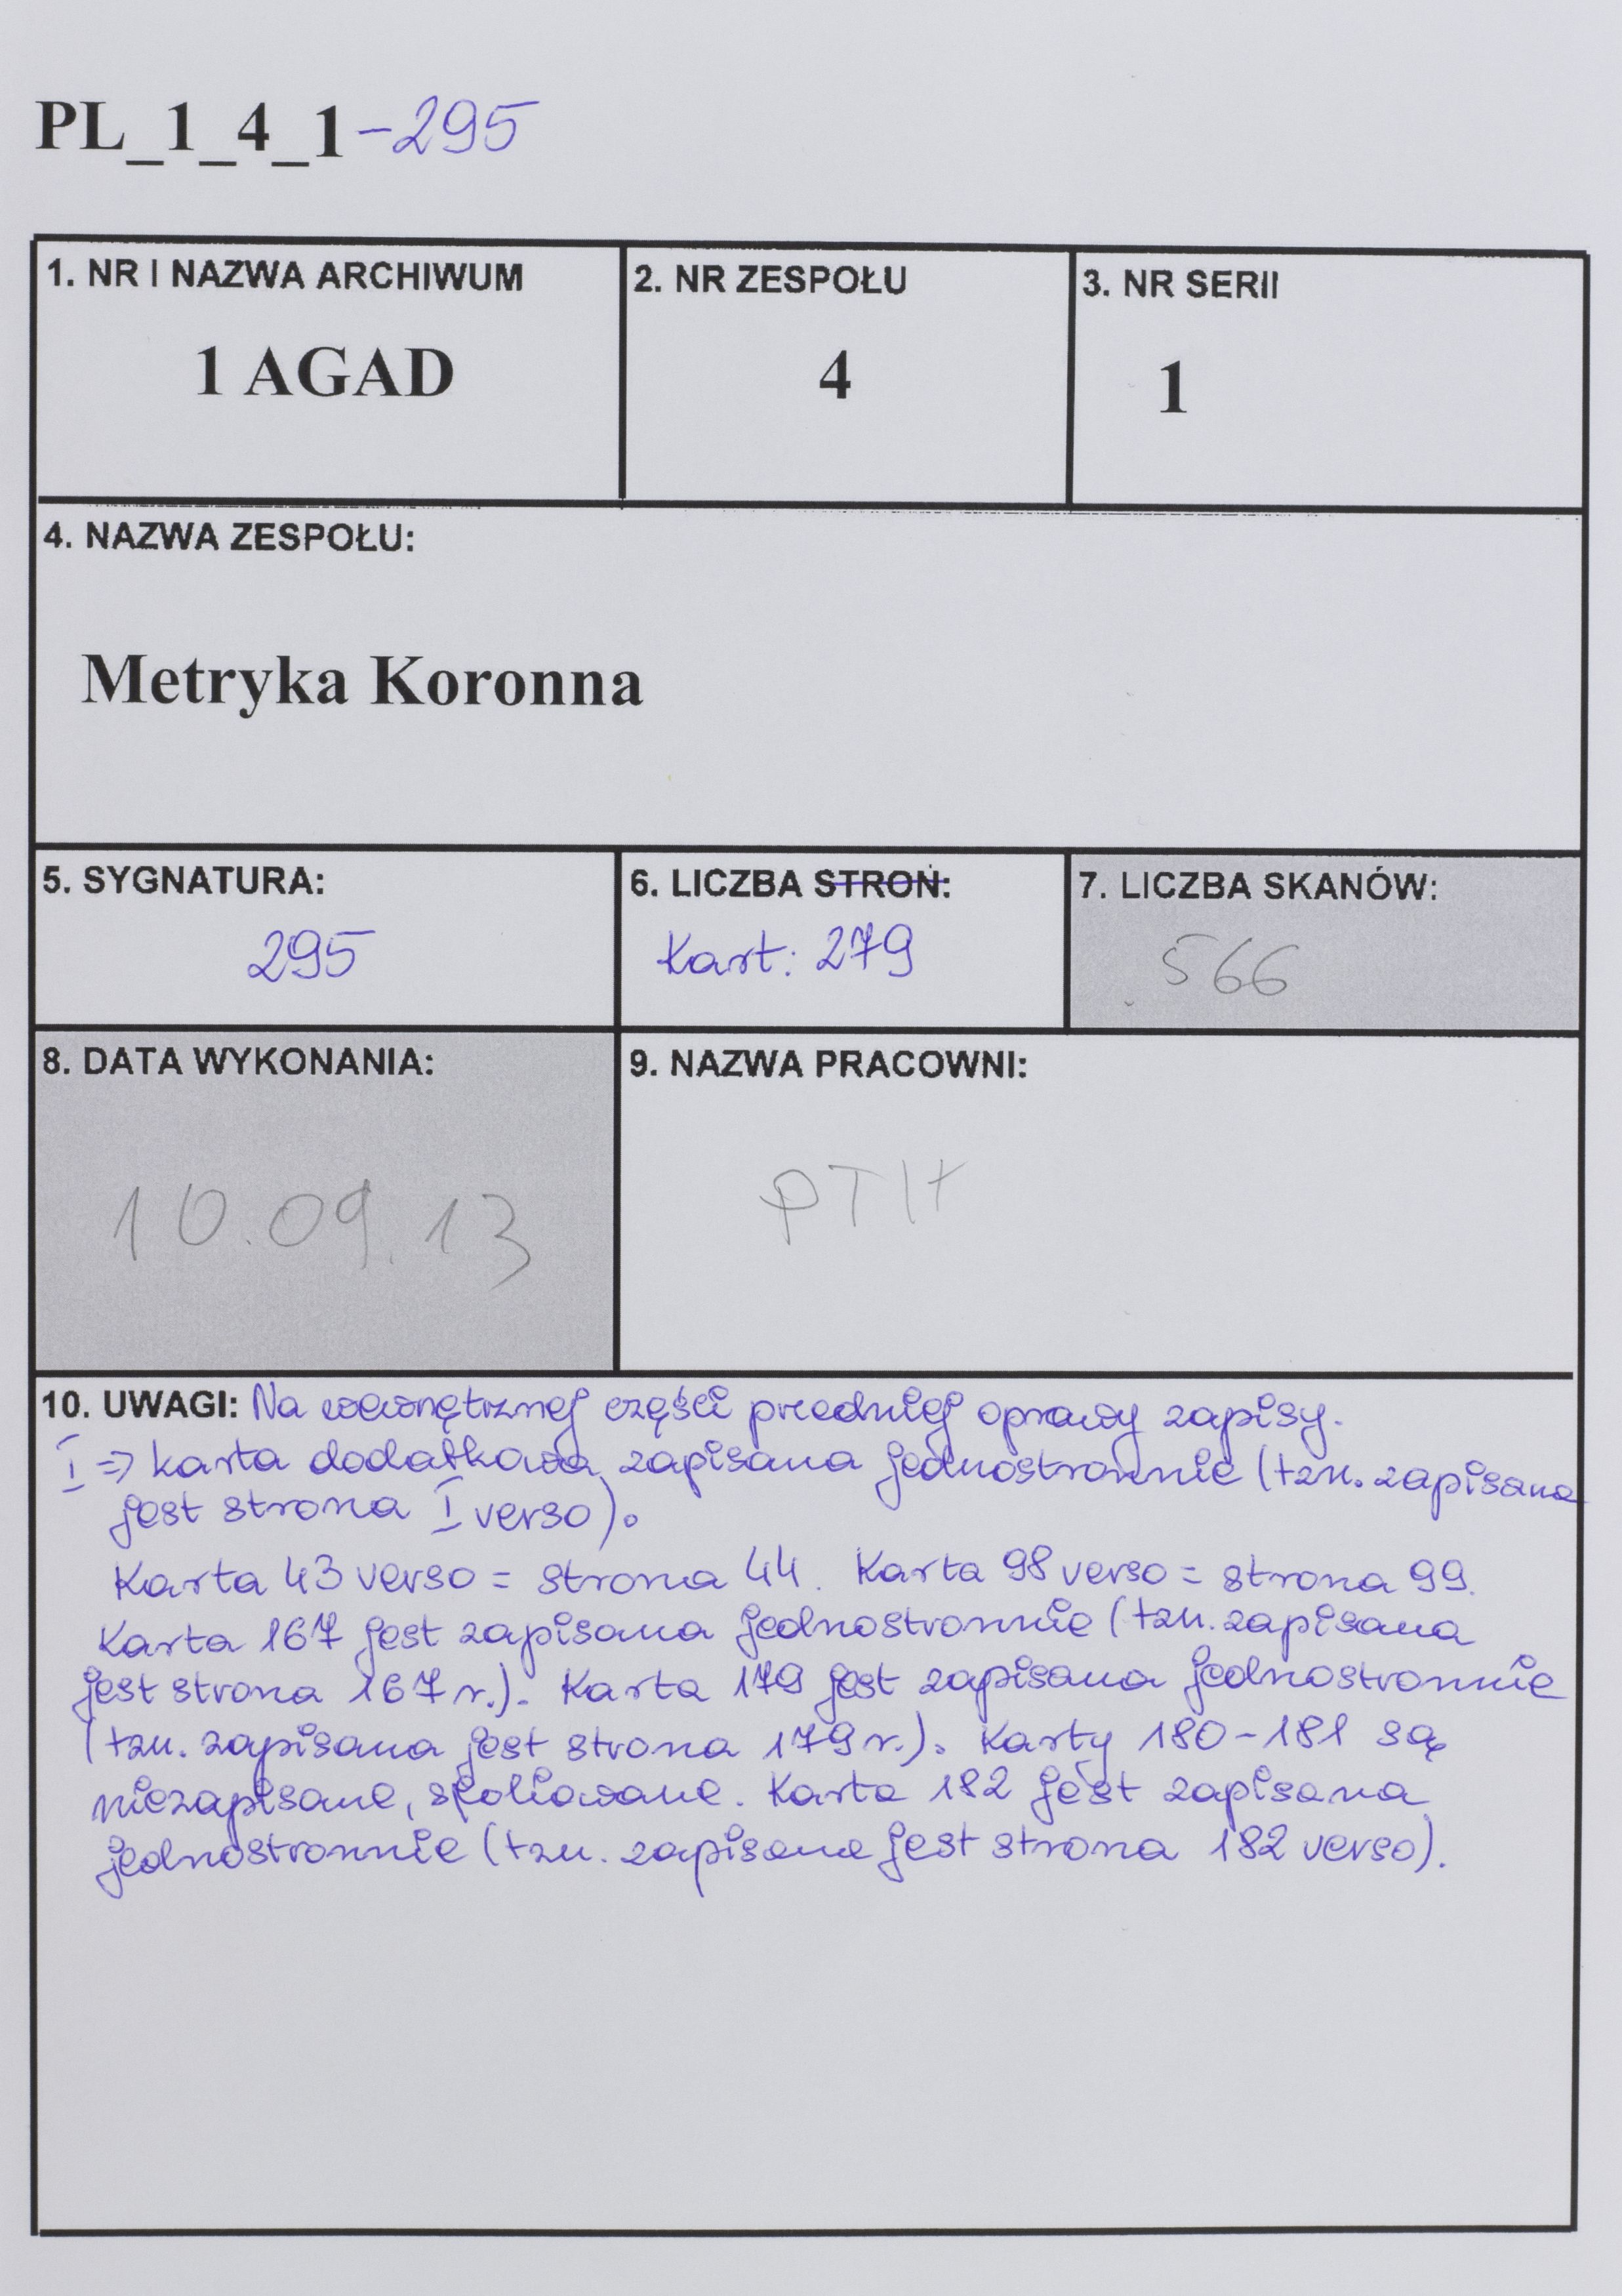 PL_1_4_1-295
1. NR I NAZWA ARCHIWUM
1 AGAD
2. NR ZESPOŁU
4
3. NR SERII
1
4. NAZWA ZESPOŁU:
Metryka Koronna
5. SYGNATURA:
295
6. LICZBA STRON:
Kart: 279
7. LICZBA SKANÓW:
566
8. DATA WYKONANIA:
10.09.13
9. NAZWA PRACOWNI:
10. UWAGI: Na wewnętrznej części przedniej oprawy zapisy.
I => karta dodatkowa zapisana jednostronnie (tzn. zapisana
jest strona I verso).
Karta 43 verso = strona 44. Karta 98 verso = strona 99.
Karta 167 jest zapisana jednostronnie (tzn. zapisana
jest strona 167 r.). Karta 179 jest zapisana jednostronnie
(tzn. zapisana jest strona 179 r.). Karty 180-181 są
niezapisane, spoliowane. Karta 182 jest zapisana
jednostronnie (tzn. zapisana jest strona 182 verso).